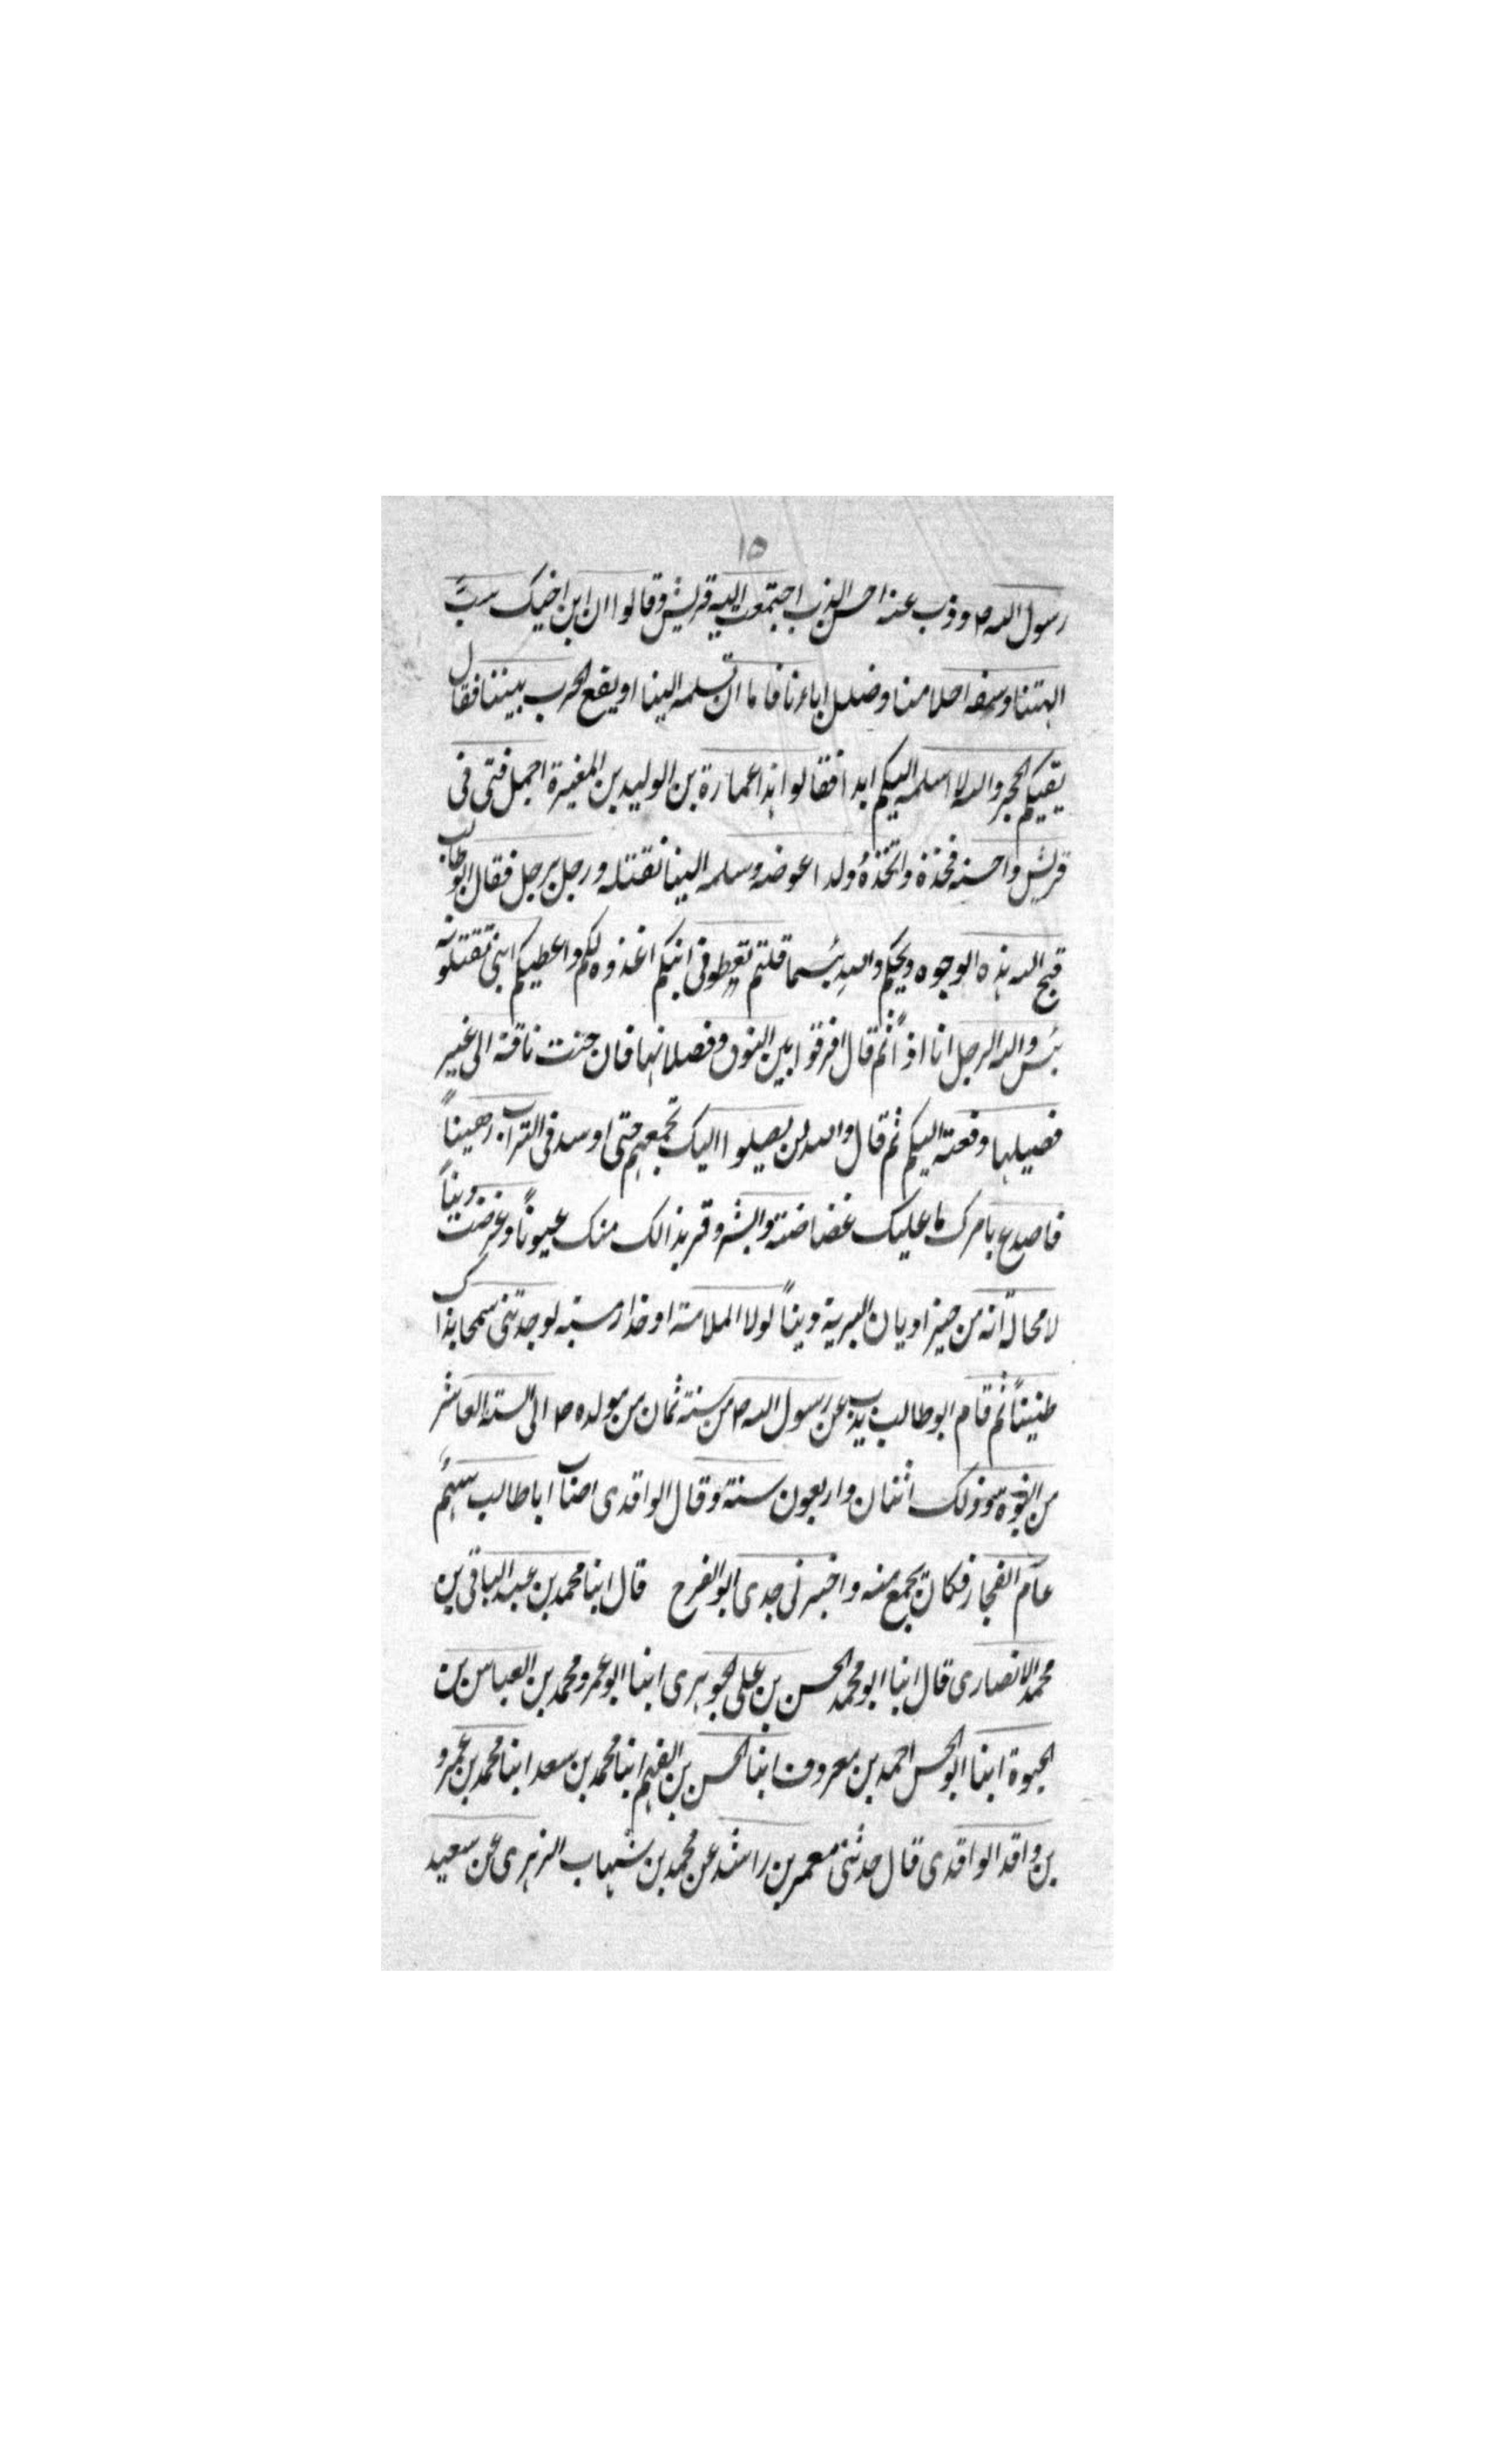 ١٥
رسول الله ص وذب عنه احسن الذب اجتمعت اليه قريش وقالوا ان ابن اخيك سبّ
الهتنا وسفه احلامنا وضلل اباءنا فاما ان تسلمه الينا او يقع الحرب بيننا فقال
بفيكم الحجر والله لا اسلمه اليكم ابدا فقالوا هذا عمارة بن الوليد بن المغيرة اجمل فتى فى
قريش واحسنه فخذه واتخذهُ ولدا عوضه وسلمه الينا نقتله ورجل برجل فقال ابو طالب
قبح الله هذه الوجوه ويحكم والله بئسما قلتم تعطونى ابنكم اغذوه لكم واعطيكم ابنى تقتلونه
بئس والله الرجل انا اذاً ثم قال افرقوا بين النوق وفصلانها فان حنت ناقة الى غير
فصيلها دفعته اليكم ثم قال والله لن يصلوا اليك بجمعهم حتى اوسد فى التراب رهيناً
فاصدع بامرك ما عليك غضاضة وابشر وقر بذالك منك عيوناً وعرضت ديناً
لا محالة انه من خير اديان البرية ديناً لولا الملامة او حذار سبة لوجدتنى سمحا بذاك
طنيناً ثم قام ابو طالب يذب عن رسول الله ص من سنة ثمان من مولده ص الى السنة العاشر
من النبوة وذلك اثنان واربعون سنة وقال الواقدى اصاب ابا طالب سهم
عام الفجار فكان يجمع منه واخبرنى جدى ابو الفرح قال ابنا محمد بن عبد الباقى بن
محمد الانصارى قال ابنا ابو محمد الحسن بن على الجوهرى ابنا ابو عمرو محمد بن العباس بن
الحيوة ابنا ابو الحسن احمد بن معروف ابنا الحسن بن الفهم ابنا محمد بن سعد ابنا محمد بن عمرو
بن واقد الواقدى قال حدثنى معمر بن راشد عن محمد بن شهاب الزهرى عن سعيد